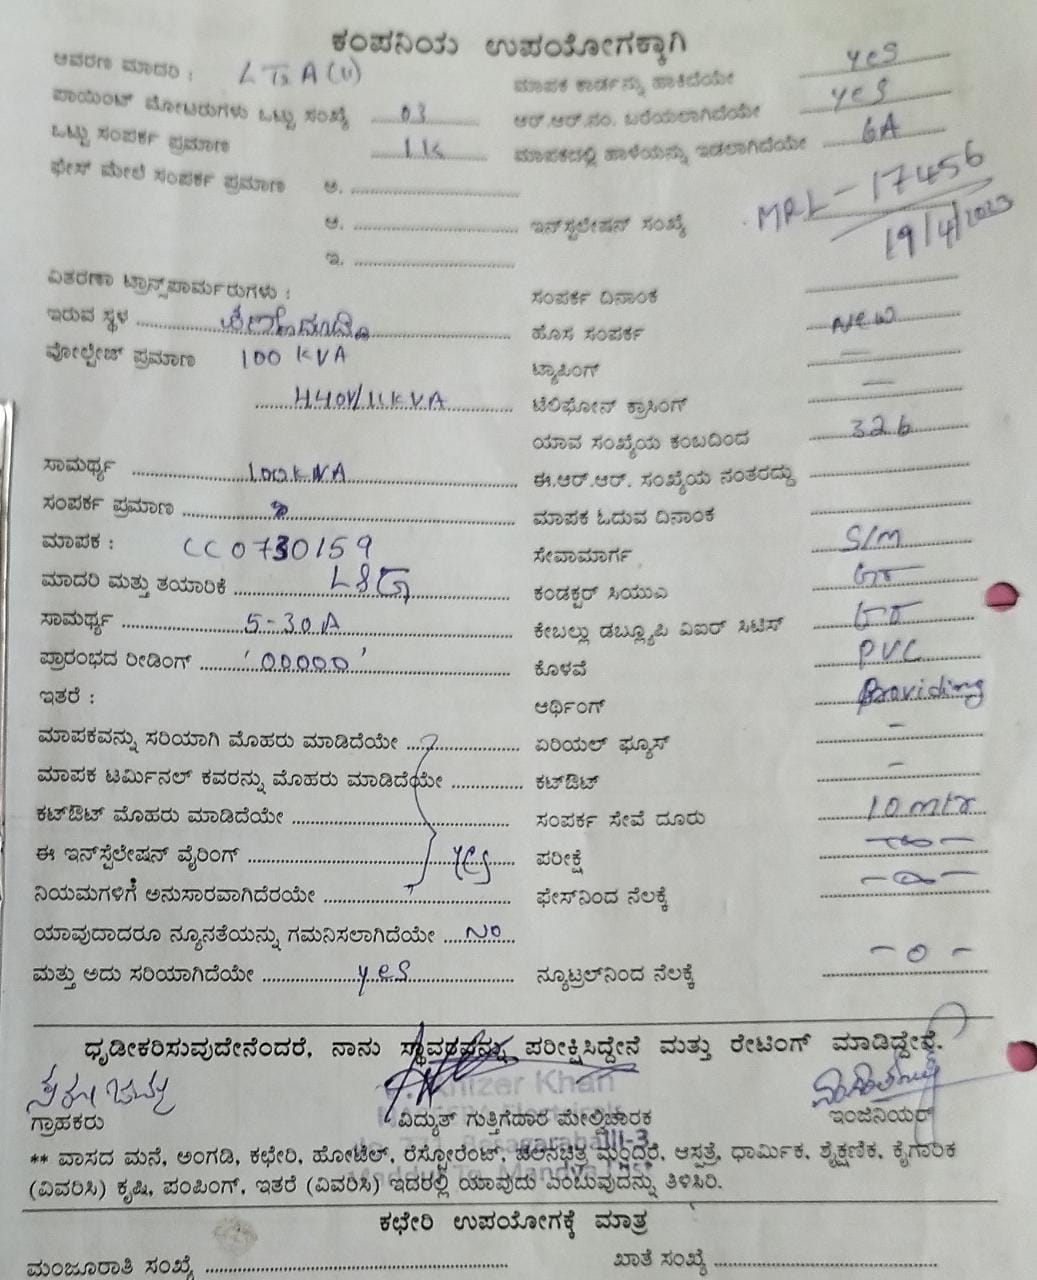 ಕಂಪನಿಯ ಉಪಯೋಗಕ್ಕಾಗಿ
ಆವರಣ ಮಾದರಿ :
ಮಾಪಕ ಕಾರ್ಡನ್ನು ಹಾಕಿದೆಯೇ yes
ಪಾಯಿಂಟ್ ಮೋಟರುಗಳು ಒಟ್ಟು ಸಂಖ್ಯೆ 03
ಆರ್.ಆರ್.ನಂ. ಬರೆಯಲಾಗಿದೆಯೇ yes
ಒಟ್ಟು ಸಂಪರ್ಕ ಪ್ರಮಾಣ
ಮಾಪಕದಲ್ಲಿ ಹಾಳೆಯನ್ನು ಇಡಲಾಗಿದೆಯೇ 6A
ಫೇಸ್ ಮೇಲೆ ಸಂಪರ್ಕ ಪ್ರಮಾಣ ಅ.
MRL-17456
ಆ. ಇನ್‌ಸ್ಟಲೇಷನ್ ಸಂಖ್ಯೆ
19/4/2023
ಇ.
ವಿತರಣಾ ಟ್ರಾನ್ಸ್‌ಫಾರ್ಮರುಗಳು :
ಸಂಪರ್ಕ ದಿನಾಂಕ
ಇರುವ ಸ್ಥಳ
ಹೊಸ ಸಂಪರ್ಕ New
ವೋಲ್ಟೇಜ್ ಪ್ರಮಾಣ 100 KVA
ಟ್ಯಾಪಿಂಗ್ —
440V/11KVA
ಟೆಲಿಫೋನ್ ಕ್ರಾಸಿಂಗ್ —
ಯಾವ ಸಂಖ್ಯೆಯ ಕಂಬದಿಂದ 326
ಸಾಮರ್ಥ್ಯ 100KVA
ಈ.ಆರ್.ಆರ್. ಸಂಖ್ಯೆಯ ನಂತರದ್ದು
ಸಂಪರ್ಕ ಪ್ರಮಾಣ
ಮಾಪಕ ಓದುವ ದಿನಾಂಕ
ಮಾಪಕ : CC0730159
ಸೇವಾಮಾರ್ಗ S/M
ಮಾದರಿ ಮತ್ತು ತಯಾರಿಕೆ
ಕಂಡಕ್ಟರ್ ಸಿಯುಎ
ಸಾಮರ್ಥ್ಯ 5-30A
ಕೇಬಲ್ಲು ಡಬ್ಲ್ಯೂಪಿ ವಿಐಆರ್ ಸಿಟಿಸ್
ಪ್ರಾರಂಭದ ರೀಡಿಂಗ್ '00000'
ಕೊಳವೆ PVC
ಇತರೆ :
ಆರ್ಥಿಂಗ್ Providing
ಮಾಪಕವನ್ನು ಸರಿಯಾಗಿ ಮೊಹರು ಮಾಡಿದೆಯೇ
ಏರಿಯಲ್ ಫ್ಯೂಸ್ -
ಮಾಪಕ ಟರ್ಮಿನಲ್ ಕವರನ್ನು ಮೊಹರು ಮಾಡಿದೆಯೇ
ಕಟ್‌ಔಟ್ -
ಕಟ್‌ಔಟ್ ಮೊಹರು ಮಾಡಿದೆಯೇ
ಸಂಪರ್ಕ ಸೇವೆ ದೂರು 10 mtr
ಈ ಇನ್‌ಸ್ಟೆಲೇಷನ್ ವೈರಿಂಗ್ yes
ಪರೀಕ್ಷೆ
ನಿಯಮಗಳಿಗೆ ಅನುಸಾರವಾಗಿದೆರಯೇ
ಫೇಸ್‌ನಿಂದ ನೆಲಕ್ಕೆ
ಯಾವುದಾದರೂ ನ್ಯೂನತೆಯನ್ನು ಗಮನಿಸಲಾಗಿದೆಯೇ No
ಮತ್ತು ಅದು ಸರಿಯಾಗಿದೆಯೇ yes
ನ್ಯೂಟ್ರಲ್‌ನಿಂದ ನೆಲಕ್ಕೆ -0-
ಧೃಡೀಕರಿಸುವುದೇನೆಂದರೆ, ನಾನು ಸ್ಥಾವರವನ್ನು ಪರೀಕ್ಷಿಸಿದ್ದೇನೆ ಮತ್ತು ರೇಟಿಂಗ್ ಮಾಡಿದ್ದೇನೆ.
Khizer Khan
ಗ್ರಾಹಕರು
ವಿದ್ಯುತ್ ಗುತ್ತಿಗೆದಾರ ಮೇಲ್ವಿಚಾರಕ
ಇಂಜಿನಿಯರ್
** ವಾಸದ ಮನೆ, ಅಂಗಡಿ, ಕಛೇರಿ, ಹೋಟೆಲ್, ರೆಸ್ಟೋರೆಂಟ್, ಚಲನಚಿತ್ರ ಮಂದಿರ, ಆಸ್ಪತ್ರೆ, ಧಾರ್ಮಿಕ, ಶೈಕ್ಷಣಿಕ, ಕೈಗಾರಿಕ
(ವಿವರಿಸಿ) ಕೃಷಿ, ಪಂಪಿಂಗ್, ಇತರೆ (ವಿವರಿಸಿ) ಇದರಲ್ಲಿ ಯಾವುದು ಎಂಬುವುದನ್ನು ತಿಳಿಸಿರಿ.
ಕಛೇರಿ ಉಪಯೋಗಕ್ಕೆ ಮಾತ್ರ
ಮಂಜೂರಾತಿ ಸಂಖ್ಯೆ
ಖಾತೆ ಸಂಖ್ಯೆ